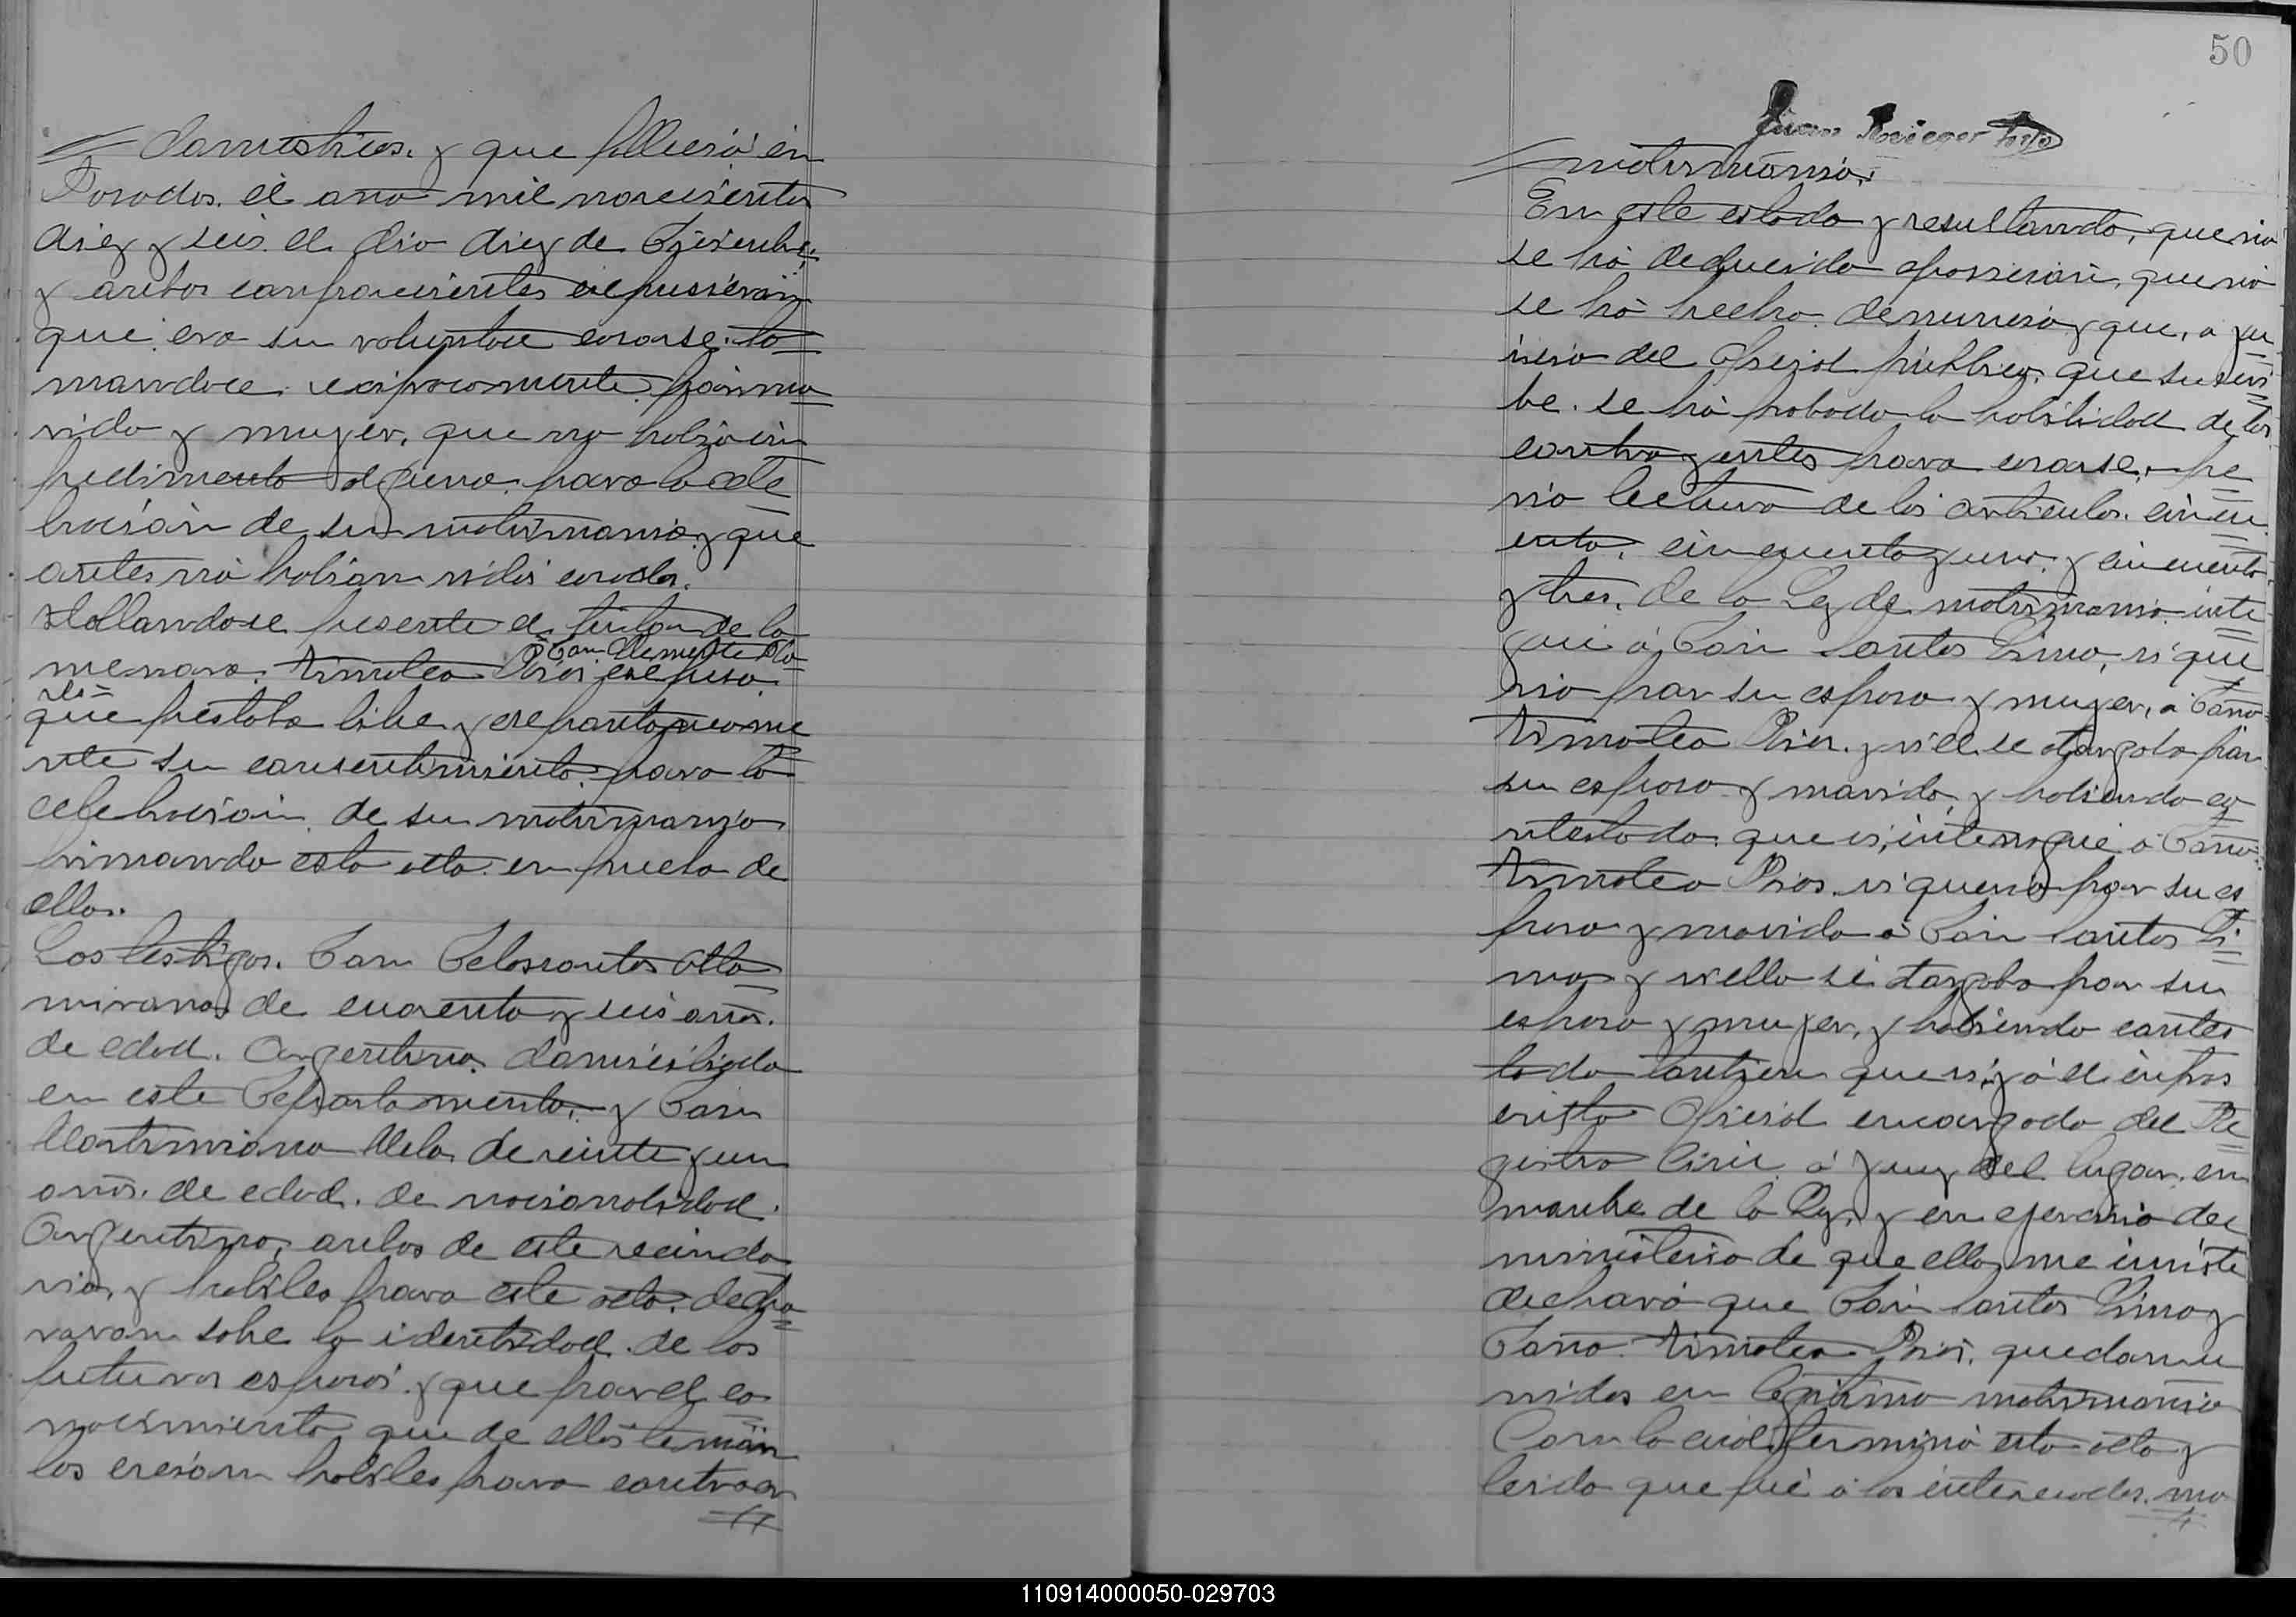 domesticos. y que falleció en
Posadas. el año mil novecientos
diez y seis. el dia diez de Diciembre,
y ambos comparecientes expusieron
que era su voluntad casarse. to
mandoce reciprocamente por ma
rido y mujer, que no habia im
pedimento alguno para la cele
bración de su matrimonio y que
antes no habian sidos casados.
Hallandose presente el tutor de la
menora. Timotea Rios, expuso
Don Clemente Flo
res
que prestaba libre y expontaneame
nte su consentimiento para la
celebración de su matrimonio
firmando esta acta en prueba de
ello.
Los testigos. Don Delossantos Alta
mirano de cuarenta y seis años.
de edad. Argentino. domiciliado
en este Departamento, y Don
Martimiano Melo de veinte y un
años. de edad. de nacionalidad.
Argentino, ambos de este vecinda
rio, y habiles para este acto. decla
raron sobre la identidad de los
futuros esposos y que por el co
nocimiento que de ellos tenian
los creian habiles para contraer
50
Juan
matrimonio.
En este estado y resultando, que no
se há deducido oposicion, que no
se há hecho denuncia y que, a ju
icio del Oficial público que suscri
be. se há probado la habilidad de los
contrayentes para casarse, pre
vio lectura de los articulos. cincu
enta, cincuenta y uno, y cincuenta
y tres. de la Ley de matrimonio inte
rrogué á Don Santos Lima, si que
ria por su esposa y mujer, á Doña
Timotea Rios. y si el se otorgaba por
su esposo y marido, y habiendo co
ntestado que si, interrogué á Doña
Timotea Rios si queria por su es
poso y marido á Don Santos Li
ma y si ella se otorgaba por su
esposa y mujer, y habiendo contes
tado tambien que si, yó el infras
crito Oficial encargado del Re
gistro Civil á Juez del lugar. en
nombre de la Ley, y en ejercicio del
ministerio de que ella me inviste
declaró que Don Santos Lima y
Doña Timotea Rios, quedan u
nidos en legitimo matrimonio
Con lo cual terminó esta acta y
leida que fué á los interesados. ma
110914000050-029703